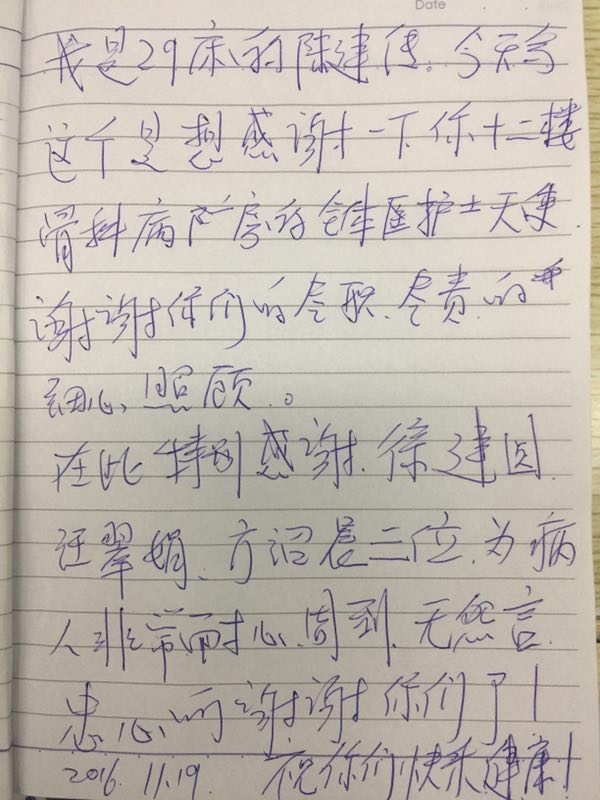 Date
我是29床的陈建倩。今天写
这个是想感谢一下你十二楼
骨科病房的全体医护士天使
谢谢你们的尽职、尽责、的
细心、照顾。
在此特别感谢、徐建圆、
汪翠娟、方沼晨三位、为病
人非常耐心、周到、无怨言、
忠心的谢谢你们了!
2016.11.19. 祝你们快乐健康!